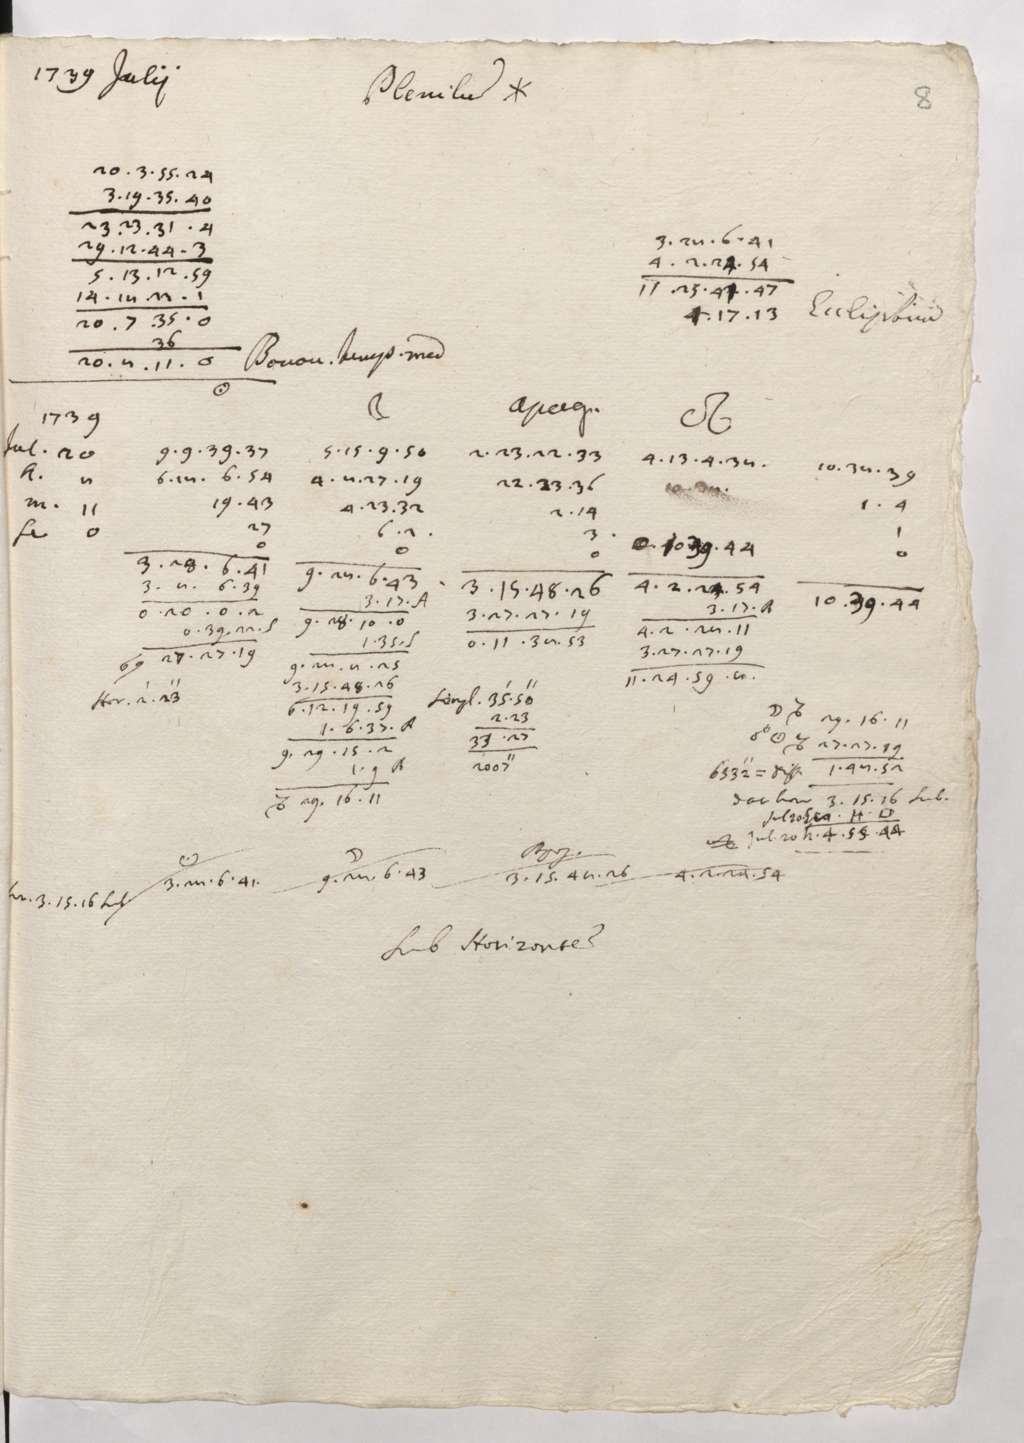 1739 Julij
Plenilu *
8
20.3.55.24
3.19.35.40
23.23.31.4
29.12.44.3
5.13.12.59
14.18.22.1
20.7.35.0
36
20.8.11.0 Bonon. temp. med
3.28.6.41
4.2.24.54
11.25.41.47
4.17.13 Ecliptica
1739 ☉ ☾ apog. ☊
Jul. 20 9.9.39.37 5.15.9.50 2.23.22.33 4.13.4.38. 10.38.39
h. 8 6.18.6.54 4.8.27.19 22.23.36 10.38. 1.4
m. 11 19.43 4.23.32 2.14 1
se 0 27 6.2. 3. 0.10.39.44 0
0 0 0
3.28.6.41 9.28.6.43 3.15.48.26 4.2.24.54 10.39.44
3.8.6.39 3.17.A 3.27.27.19 3.17.A
0.20.0.2 9.28.10.0 0.11.38.53 4.2.28.11
0.39.22.S 1.35.S 3.27.27.19
♋ 27.27.19 9.28.8.25 11.24.59.8.
Hor. 2'.23'' 3.15.48.26
6.12.19.59
1.6.37.A
9.29.15.2
1.9 A
♑ 29.16.11
35'.50''
2.23
33.27
2007''
☽ ♑ 29.16.11
☍ ☉ ♑ 27.27.19
6532'' = diff. 1.48.52
hor 3.15.16 sub.
Jul 20 8.11.0
Jul 20 h.4.55.44
☉ ☽ Apog.
3.15.16 sub 3.28.6.41. 9.28.6.43 3.15.48.26 4.2.24.54
Sub Horizonte